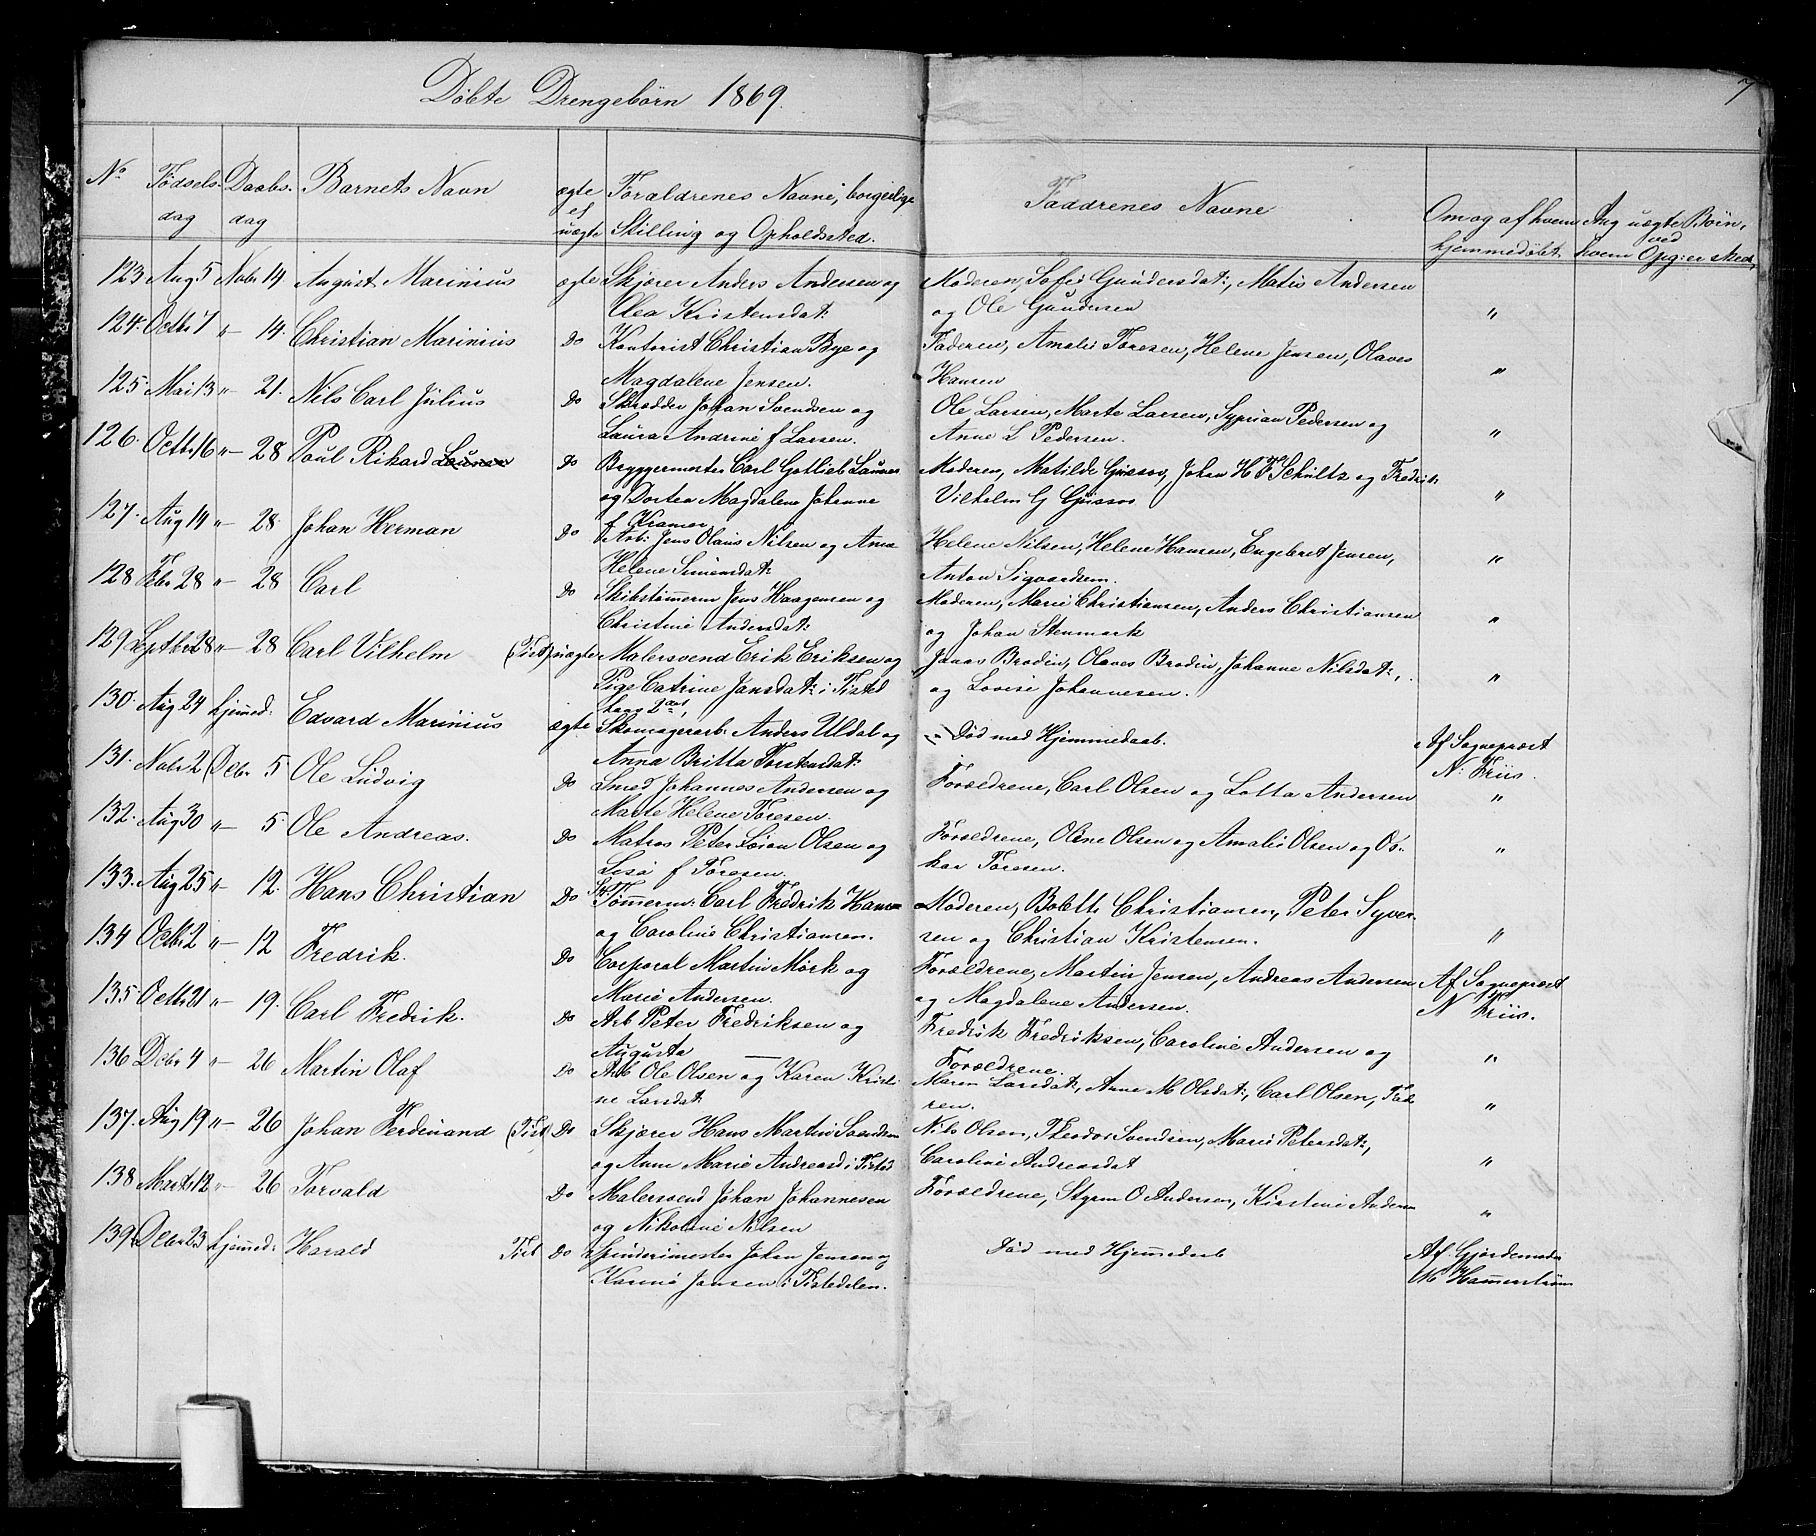 7
Döbte Drengebörn 1869.
No Fødsels- dag Daabs- dag Barnets Navn ægte el uægte Forældrenes Navne, borgerlige Stilling og Opholdsted. Faddrenes Navne Om og af hvem hjemmedøbt. Ang uægte Börn, ved hvem Opg: er sked,
123 Aug 5 Nobr 14 August Marinius ægte Skjærer Anders Andersen og Moderen, Sofie Gundersdat:, Matis Andersen
Olea Kristensdat: og Ole Gundersen "
124. Octbr 7 " — 14. Christian Marinius Do Kontorist Christian Bye og Faderen, Amalie Toresen, Helene Jensen, Olaves
Magdalene Jensen. Hansen "
125. Mai 13 " — 21. Nils Carl Julius Do Skrædder Johan Svendsen og Ole Larsen, Marte Larsen, Syprian Pedersen og
Laura Andrine f Larsen. Anne L Pedersen. "
126. Octbr 16 " — 28 Paul Rikard Do Bryggermester Carl Gotlieb Moderen, Matilde Gussov, Johan H F Schultz og Fredrik
og Dortea Magdalene Johanne Vilhelm G Gussov "
f Kramer
127. Aug 14 " — 28. Johan Herman Do Arb: Jens Olaus Nilsen og Anne Helene Nilsen, Helene Hansen, Engebret Jensen,
Helene Simensdat: Anton Sigvardsen. "
128 Febr 28 " — 28 Carl Do Skibstømerm Jens Haagensen og Moderen, Marie Christiansen, Anders Christiansen
Christine Andersdat: og Johan Stenmark "
129 Septbr 28 " — 28 Carl Vilhelm (Tist) uægte Malersvend Erik Eriksen og Jonas Brodin, Olaves Brodin, Johanne Nilsdat:,
Pige Catrine Jansdat: i Tistel og Lovise Johannesen. "
130. Aug 24 hjemed: Edvard Marinius ægte Skomagerarb: Anders Uldal og Død med Hjemmedaab. Af Sognepræst
Anna Britta Torstensdat: N: Friis.
131. Nobr 2 Debr 5 Ole Ludvig Do Smed Johannes Andersen og Forældrene, Carl Olsen og Lotta Andersen "
Marte Helene Toresen.
132. Aug 30 " — 5. Ole Andreas. Do Matros Peter Olsen og Forældrene, Oline Olsen og Amalie Olsen og Os-
Lisa f Toresen. kar Toresen. "
133. Aug 25 " — 12. Hans Christian Do Tømerm: Carl Fredrik Hansen Moderen, Bolette Christiansen, Peter Syver-
og Caroline Christiansen. sen og Christian Kristensen. "
134 Octbr 2 " — 12 Fredrik. Do Corporal Martin Mörk og Forældrene, Martin Jensen, Andreas Andersen Af Sognepræst
Marie Andersen. og Magdalene Andersen. N Friis.
135. Octbr 21 " — 19. Carl Fredrik. Do Arb Peter Fredriksen og Fredrik Fredriksen, Caroline Andersen og
Augusta — Forældrene. "
136 Debr 4 " — 26 Martin Olaf Do Arb Ole Olsen og Karen Kristi- Maren Larsdat:, Anne M Olsdat:, Carl Olsen, Fad
ne Larsdat: ren. "
137. Aug 19 " — 26 Johan Ferdinand (Tist) Do Skjærer Hans Martin Svendsen Nils Olsen, Theodor Svendsen, Marie Petersdat:,
og Anne Marie Andreasd i Tisted Caroline Andreasdat "
138 Marts 12 " — 26 Torvald Do Malersvend Johan Johannesen Forældrene, Styrm O Andersen, Kirstine Andersen
og Nikoline Nilsen "
139. Debr 23 hjemed: Harald Tist Do Spinderimester Johan Jensen og Död med Hjemedaab Af Gjordemoder
Karine Jansen i Tistedalen. M Hammerström